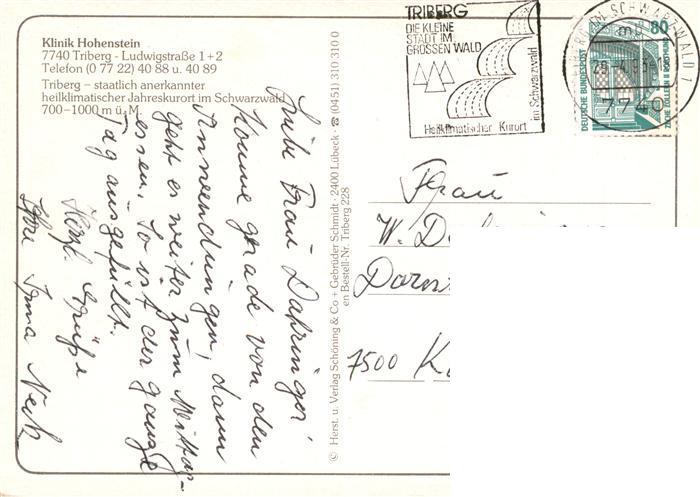 Klinik Hohenstein
7740 Triberg - Ludwigstraße 1+2
Telefon (0 77 22) 40 88 u. 40 89
Triberg – staatlich anerkannter
heilklimatischer Jahreskurort im Schwarzwald
700–1000 m ü. M.
TRIBERG
DIE KLEINE
STADT IM
GROSSEN WALD
im Schwarzwald
Heilklimatischer Kurort
7740
80
DEUTSCHE BUNDESPOST
ZECHE ZOLLERN II DORTMUND
Liebe Frau Dahringer!
Komme gerade von den
Anwendungen, dann
geht es weiter zum Mittag-
essen. So ist der ganze
Tag ausgefüllt.
Herzl. Grüße
Ihre Irma Neck
© Herst. u. Verlag Schöning & Co + Gebrüder Schmidt · 2400 Lübeck · ☎ (0451) 310 310 0
en Bestell-Nr. Triberg 228
Frau
W. D
7500 K